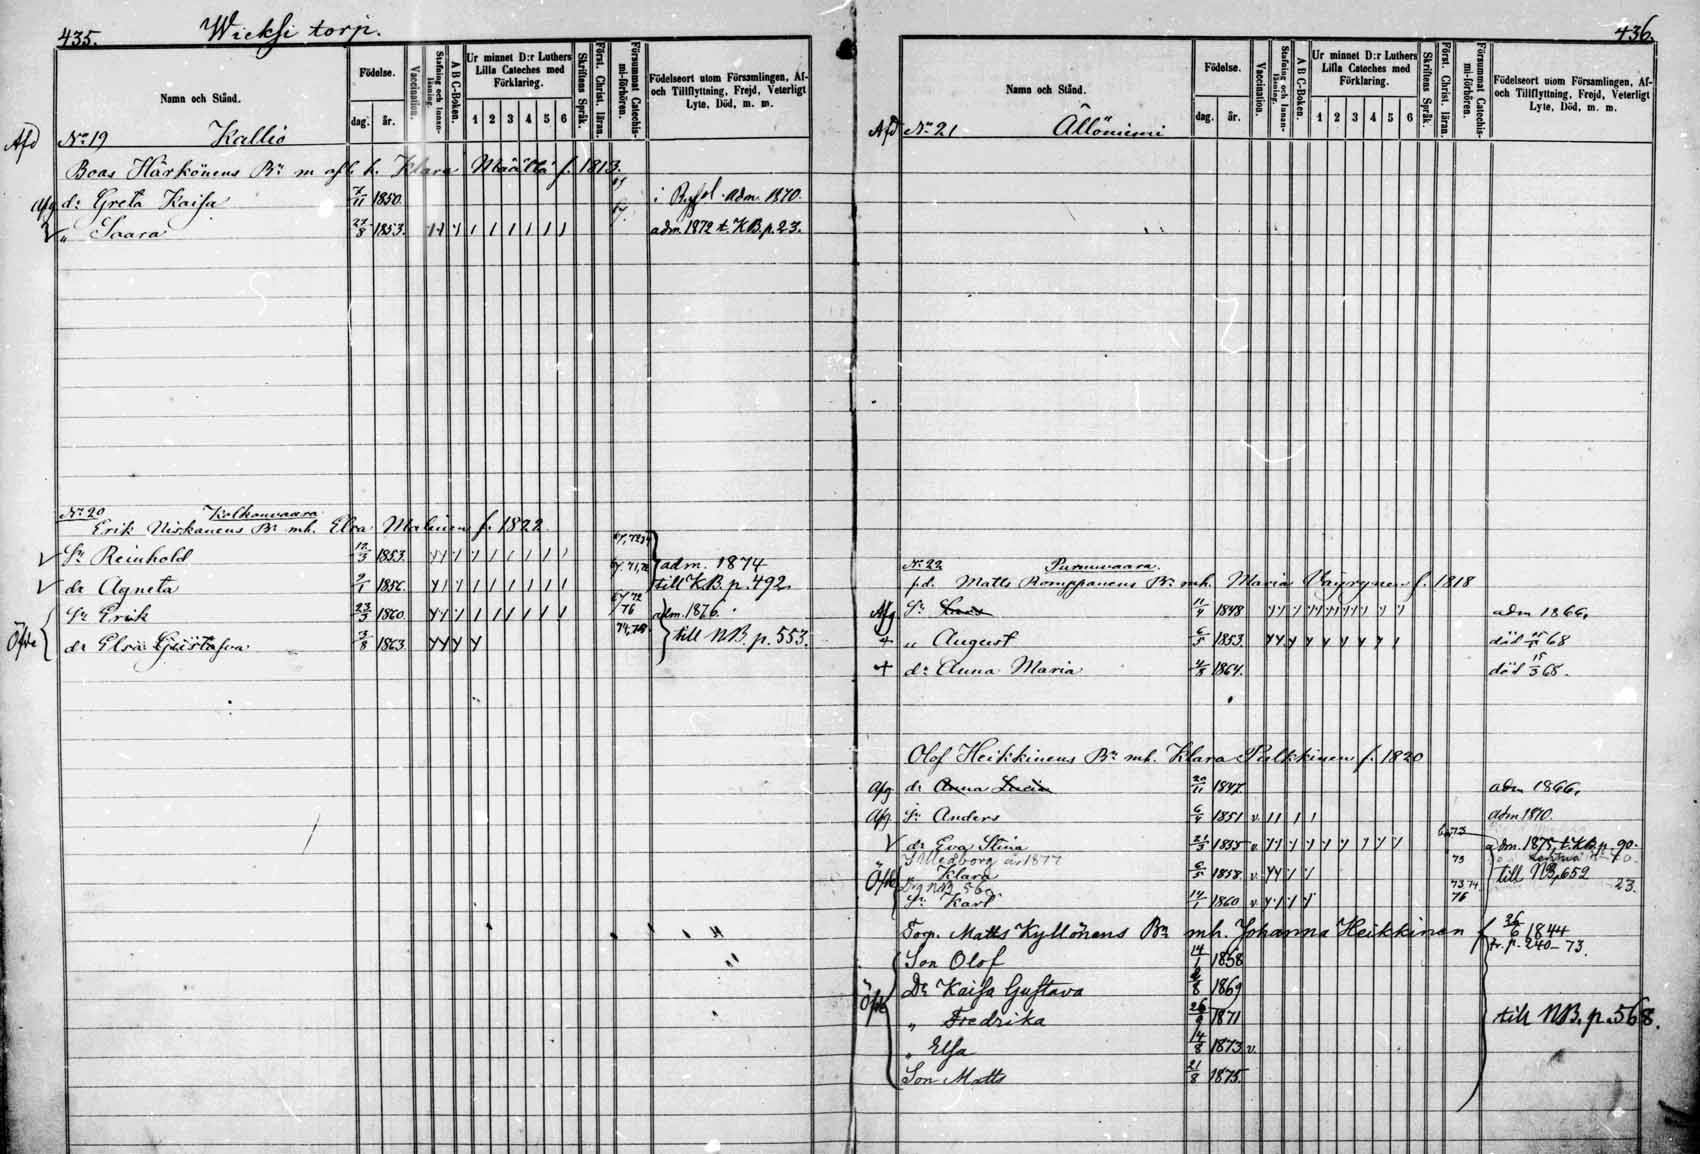 435. Wieksi torp.
Namn och Stånd.
Födelse.
dag. år.
Vaccination.
Stafning och Innan-läsning.
A B C-Boken.
Ur minnet D:r Luthers Lilla Cateches med Förklaring.
1 2 3 4 5 6
Skriftens Språk.
Först. Christ. läran.
Försummat Catechis-mi-förhören.
Födelseort utom Församlingen, Af- och Tillflyttning, Frejd, Veterligt Lyte, Död, m. m.
Afd No 19 Kallio
Boas Härkönens Bn m afl. h. Klara Määttä f. 1813.
Afg dr Greta Kaisa 7/11 1850. adm. 1870.
" Saara 23/8 1853. 67. adm. 1872 t. KB. p. 23.
No 20 Kolkonvaara
Erik Niskanens Bn mh. Elsa Malinen f. 1822
Sn Reinhold 12/3 1853. adm. 1874
dr Agneta 1856. till KB. p. 492
Sn Erik 23/3 1860. 76 adm. 1876.
Öfre dr Elsa Gustafva 3/8 1863. till NB. p. 553.
436.
Namn och Stånd.
Födelse.
dag. år.
Vaccination.
Stafning och Innan-läsning.
A B C-Boken.
Ur minnet D:r Luthers Lilla Cateches med Förklaring.
1 2 3 4 5 6
Skriftens Språk.
Först. Christ. läran.
Försummat Catechis-mi-förhören.
Födelseort utom Församlingen, Af- och Tillflyttning, Frejd, Veterligt Lyte, Död, m. m.
Afd No 21 Ällöniemi
No 22 Purnuvaara.
f.d. Matts Romppanens Bn mh. Maria Väyrynen f. 1818
Afg. Sn 11/4 1848 adm 1866,
+ " August 6/5 1853. död 68
+ dr Anna Maria 4/8 1864. död 15/3 68.
Olof Heikkinens Bn mh. Klara Pulkkinen f. 1820
Afg dr Anna Lucia 20/11 1847 adm 1866,
Afg. Sn Anders 1851 v. adm 1870.
dr Eva Stina 21/3 1855 v. 73 adm. 1875, t. KB. p. 90.
Klara 6/5 1858 v. 73 till NB p 652
Sn Karl 14/1 1860 v. 73 74 76 23.
Torp. Matts Kyllönens Bn mh. Johanna Heikkinen f 26/6 1844
fr. p. 240-73.
Son Olof 14/1 1858
Dr Kaisa Gustava 2/8 1869
" Fredrika 26/9 1871 till NB. p. 568.
" Elsa 14/8 1873 v.
Son Matts 21/8 1875